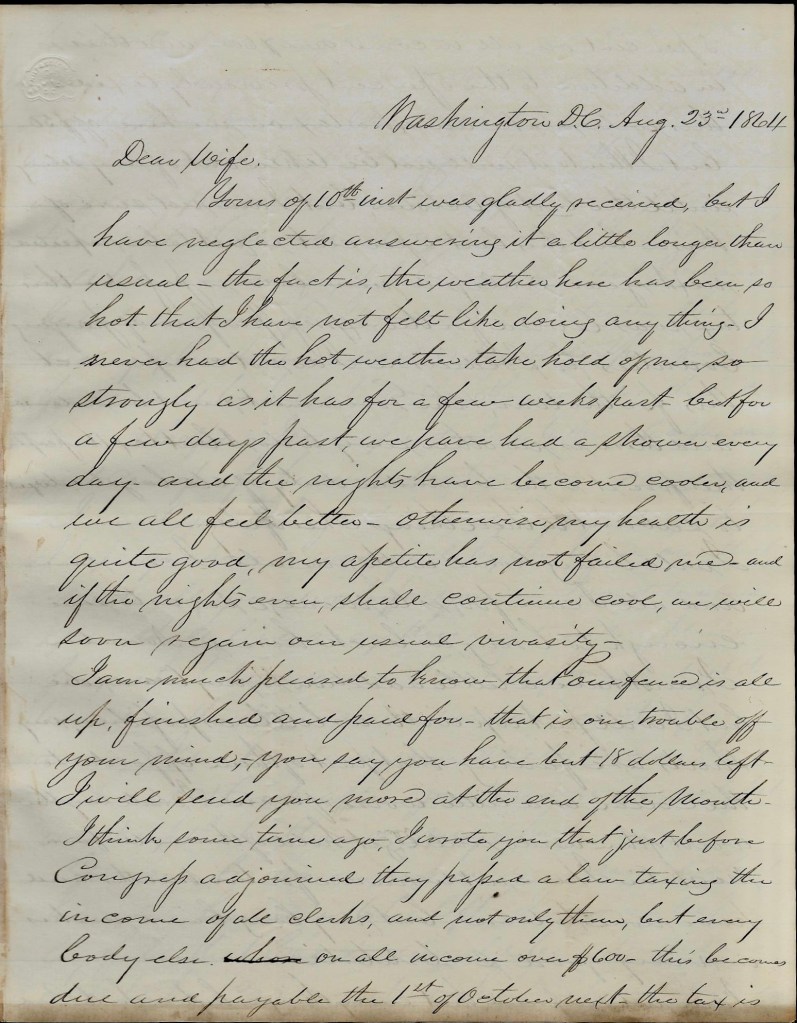 Washington D.C. Aug. 23rd 1864
Dear Wife.
Yours of 10th inst was gladly received, but I
have neglected answering it a little longer than
usual – the fact is, the weather here has been so
hot that I have not felt like doing any thing – I
never had the hot weather take hold of me so
strongly as it has for a few weeks past – but for
a few days past, we have had a shower every
day – and the nights have become cooler, and
we all feel better – otherwise, my health is
quite good, my apetite has not failed me – and
if the nights even, shall continue cool, we will
soon regain our usual vivasity –
I am much pleased to know that our fence is all
up, finished and paid for – that is one trouble off
your mind, – you say you have but 18 dollars left –
I will send you more at the end of the month –
I think some time ago, I wrote you that just before
Congress adjourned they passed a law taxing the
income of all clerks, and not only them, but every
body else on all income over $600 – this becomes
due and payable the 1st of October next – the tax is